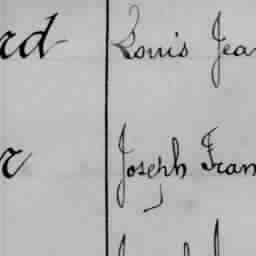 rd Louis Jea
r Joseph Fran